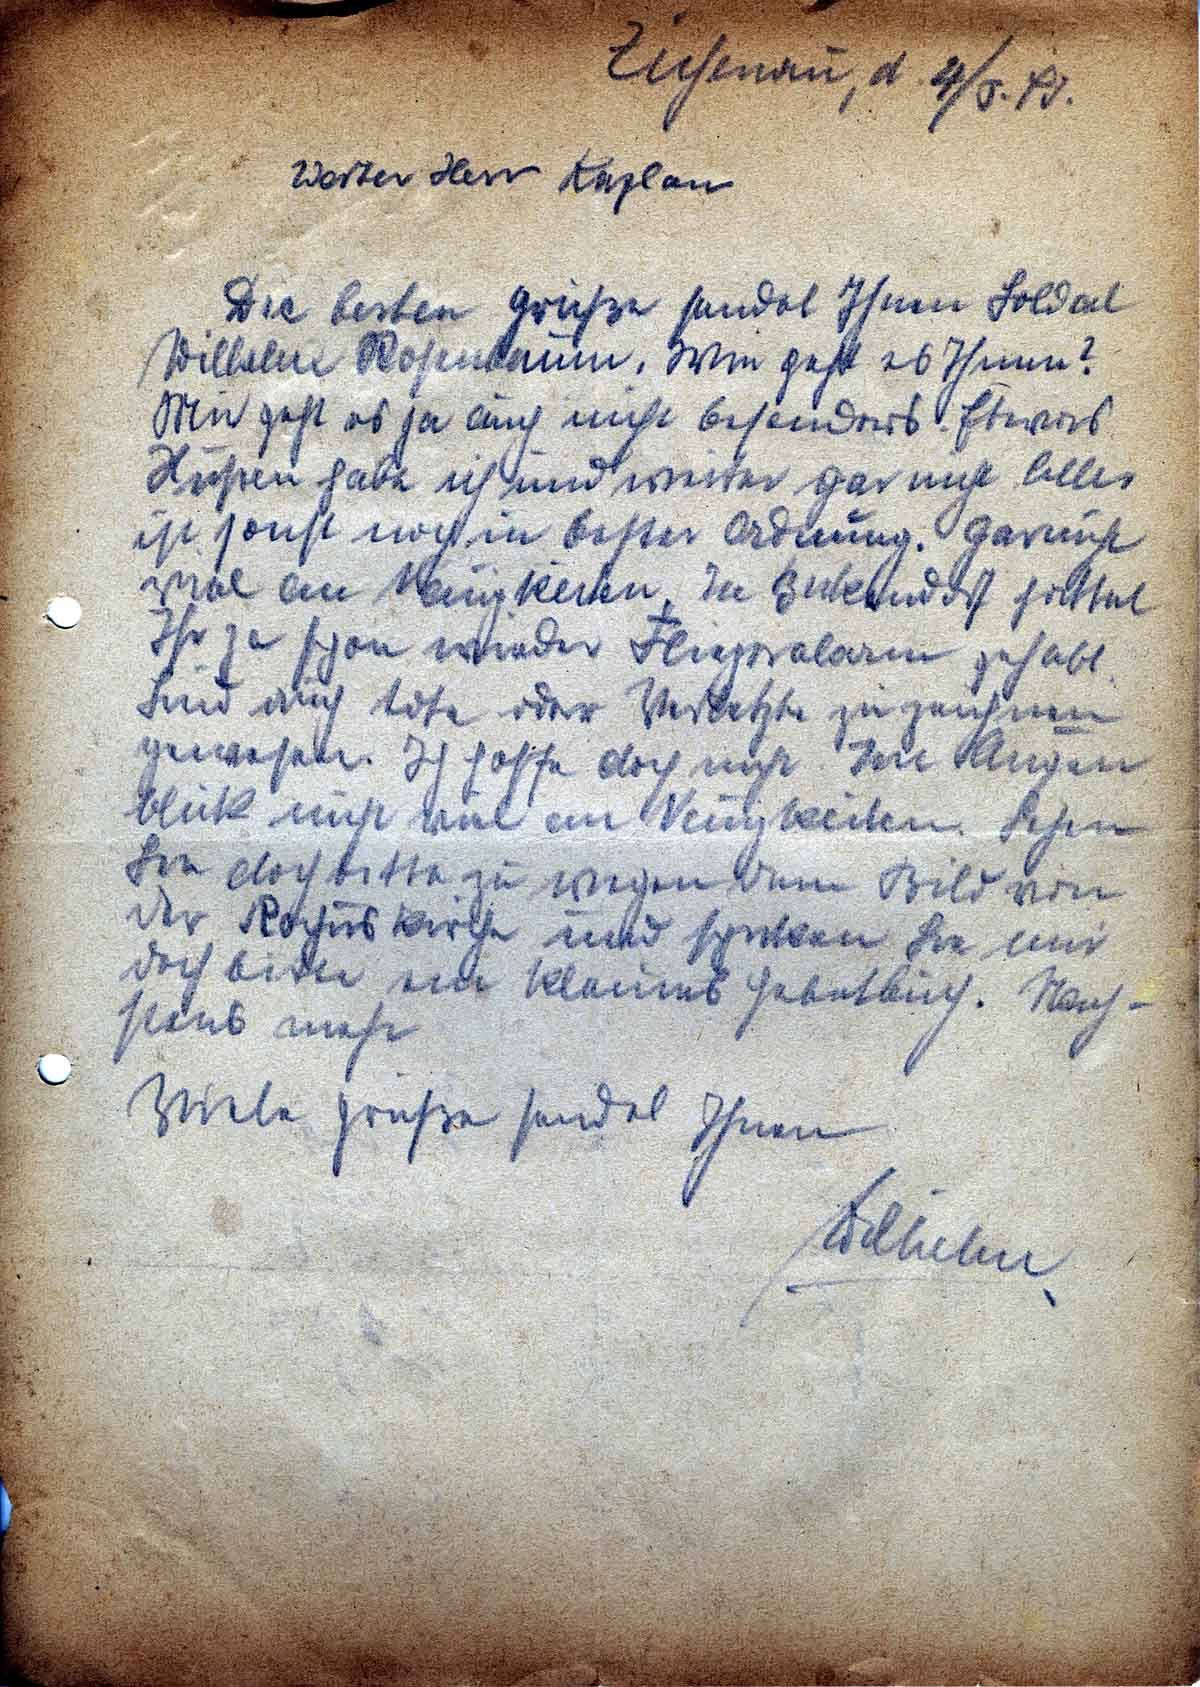 Zichenau, d 4/5. 41.
Werter Herr Kaplan
Die besten Grüße sendet Ihnen Soldat
Wilhelm Rosenbaum. Wie geht es Ihnen?
Mir geht es ja auch nicht besonders. Etwas
Husten habe ich und weiter gar nicht Alles
ist sonst noch in bester Ordnung. Garnicht
viel an Neuigkeiten. In hattet
Ihr ja schon wieder Fliegeralarm gehabt.
Sind auch tote oder Verletzte zu zeichnen
gewesen. Ich hoffe doch nicht. Im Augen
blick nicht viel an Neuigkeiten. Sehen
Sie doch bitte zu wegen dem Bild von
der Rochus kirche und schicken Sie mir
doch bitte ein kleines Gebetbuch. Näch-
stens mehr
Viele Grüße sendet Ihnen
Wilhelm